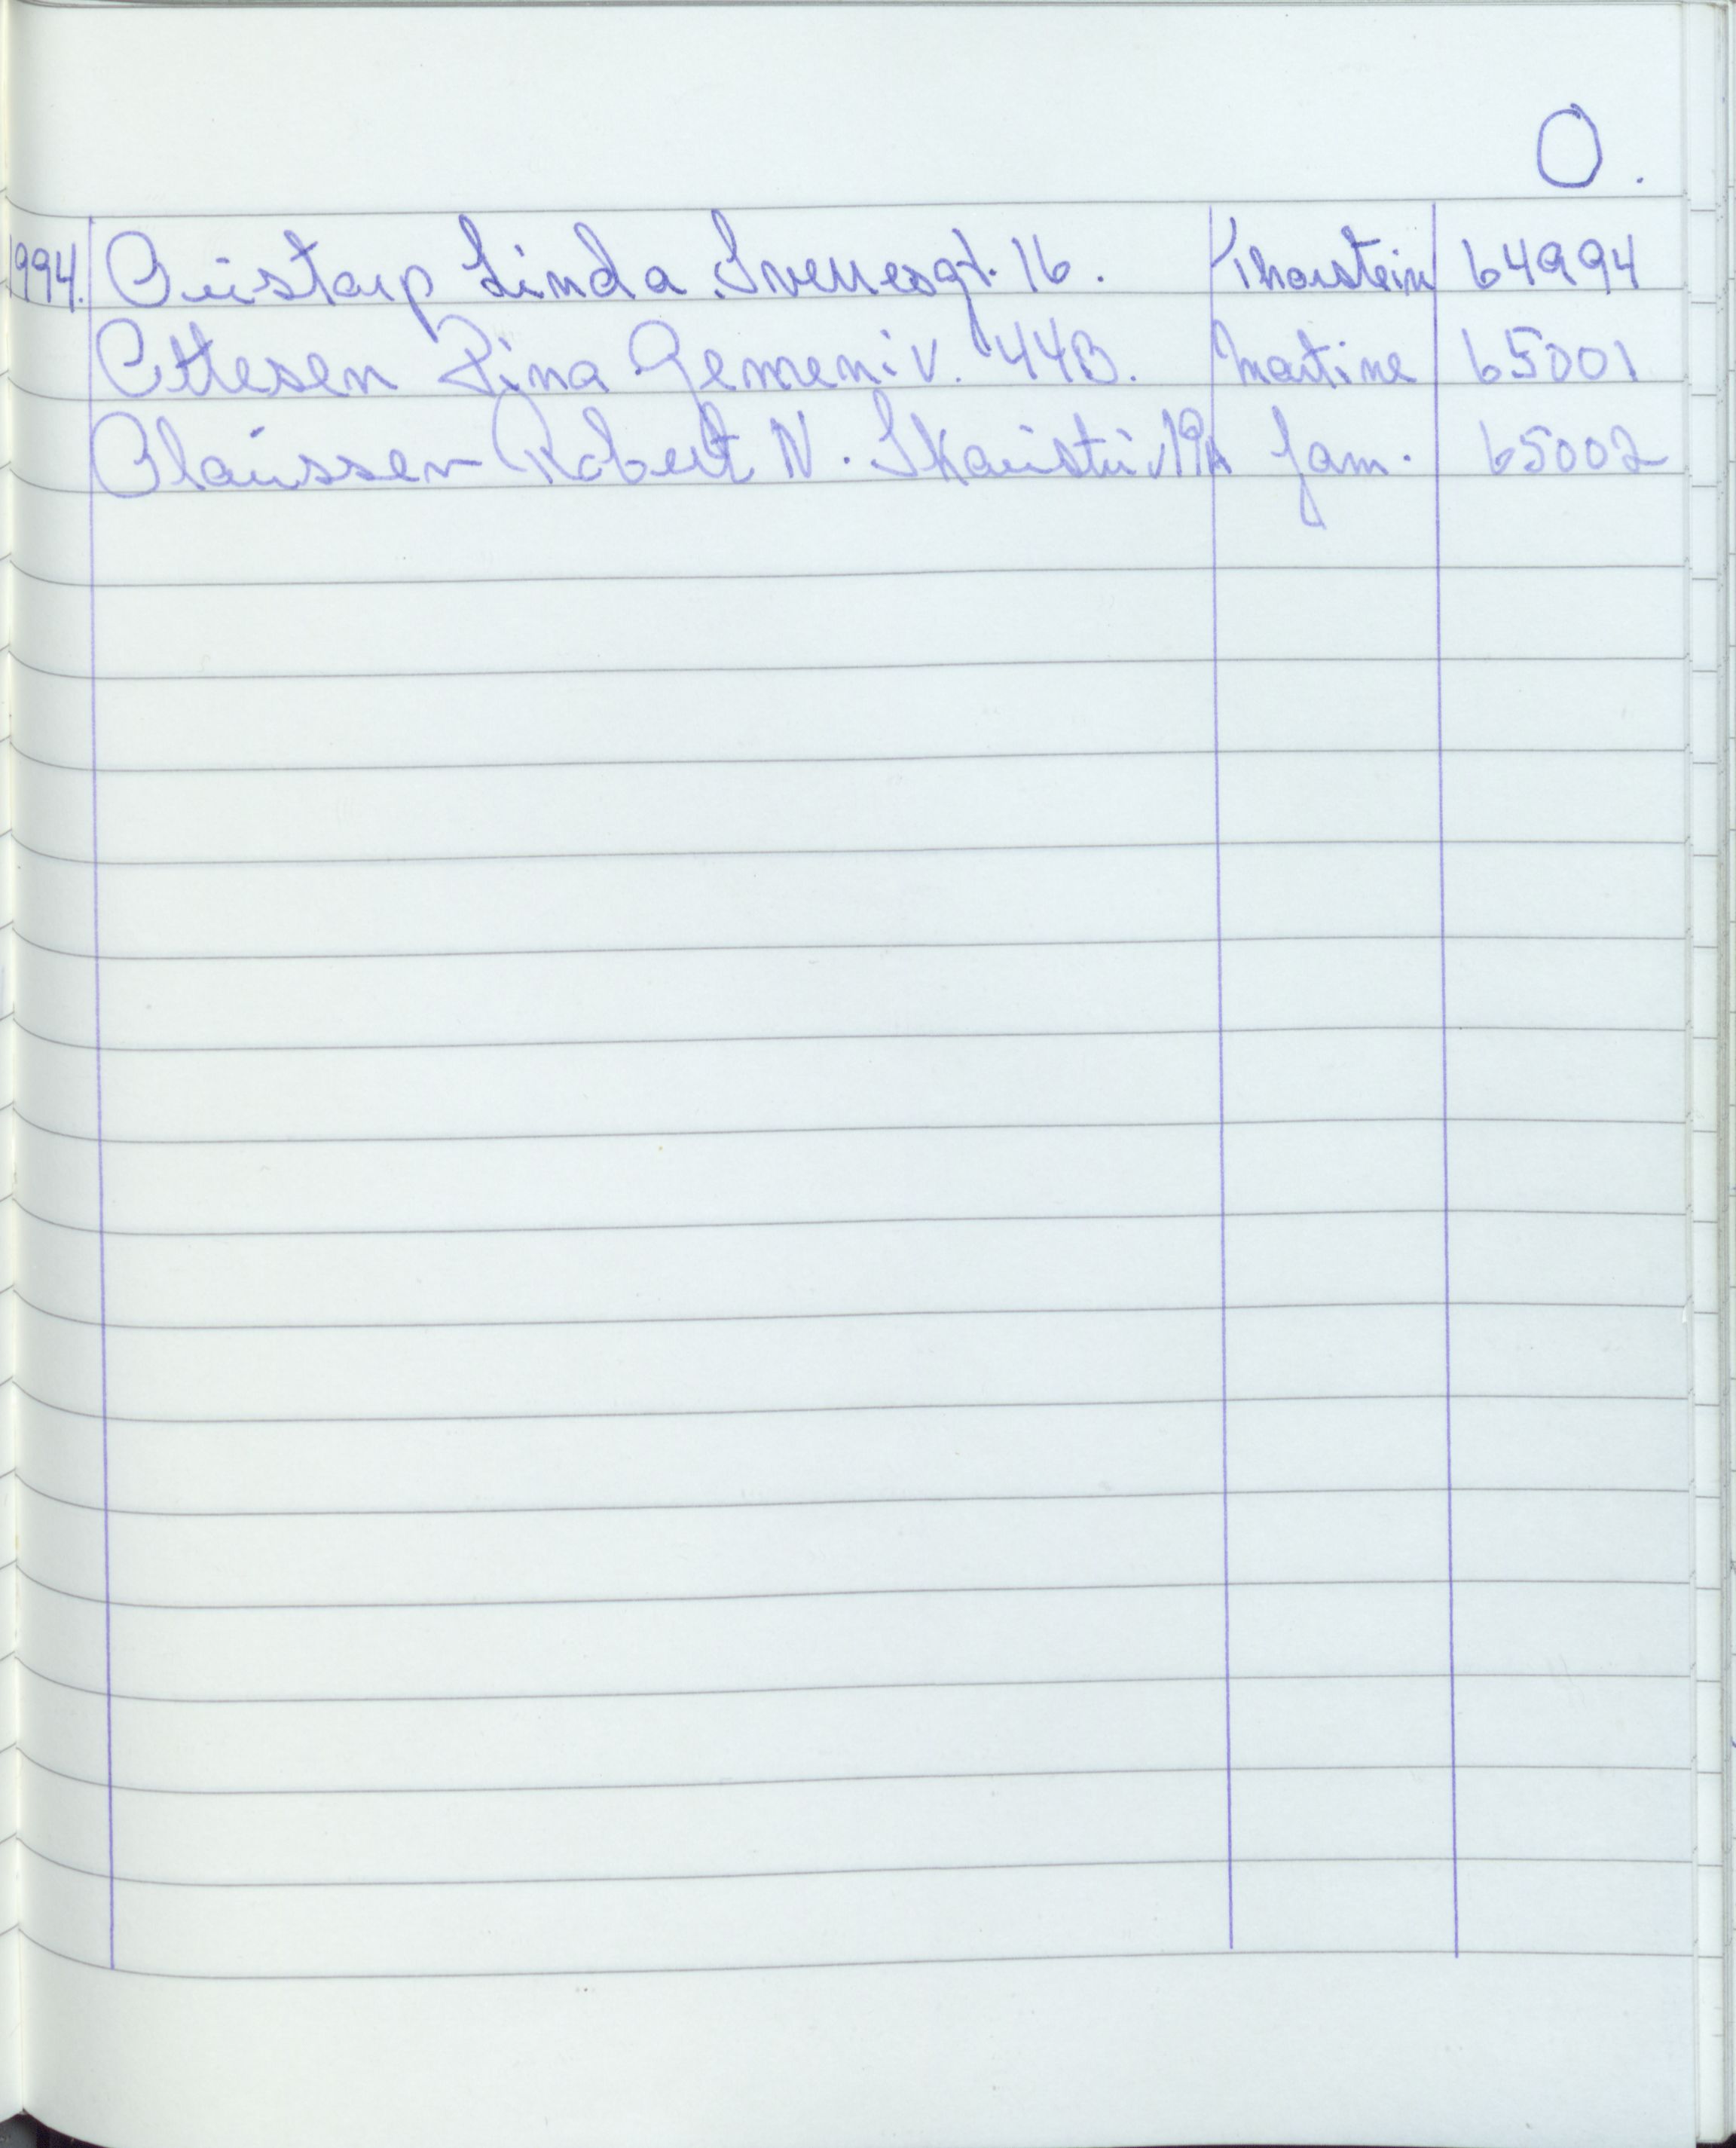 O.
1994. Ouistarp Linda Sverresgt. 16. Thorstein 64994
Ottesen Pina Gemeniv. 44B. Martine 65001
Olaussen Robert N. Skaustu. 19A fam. 65002